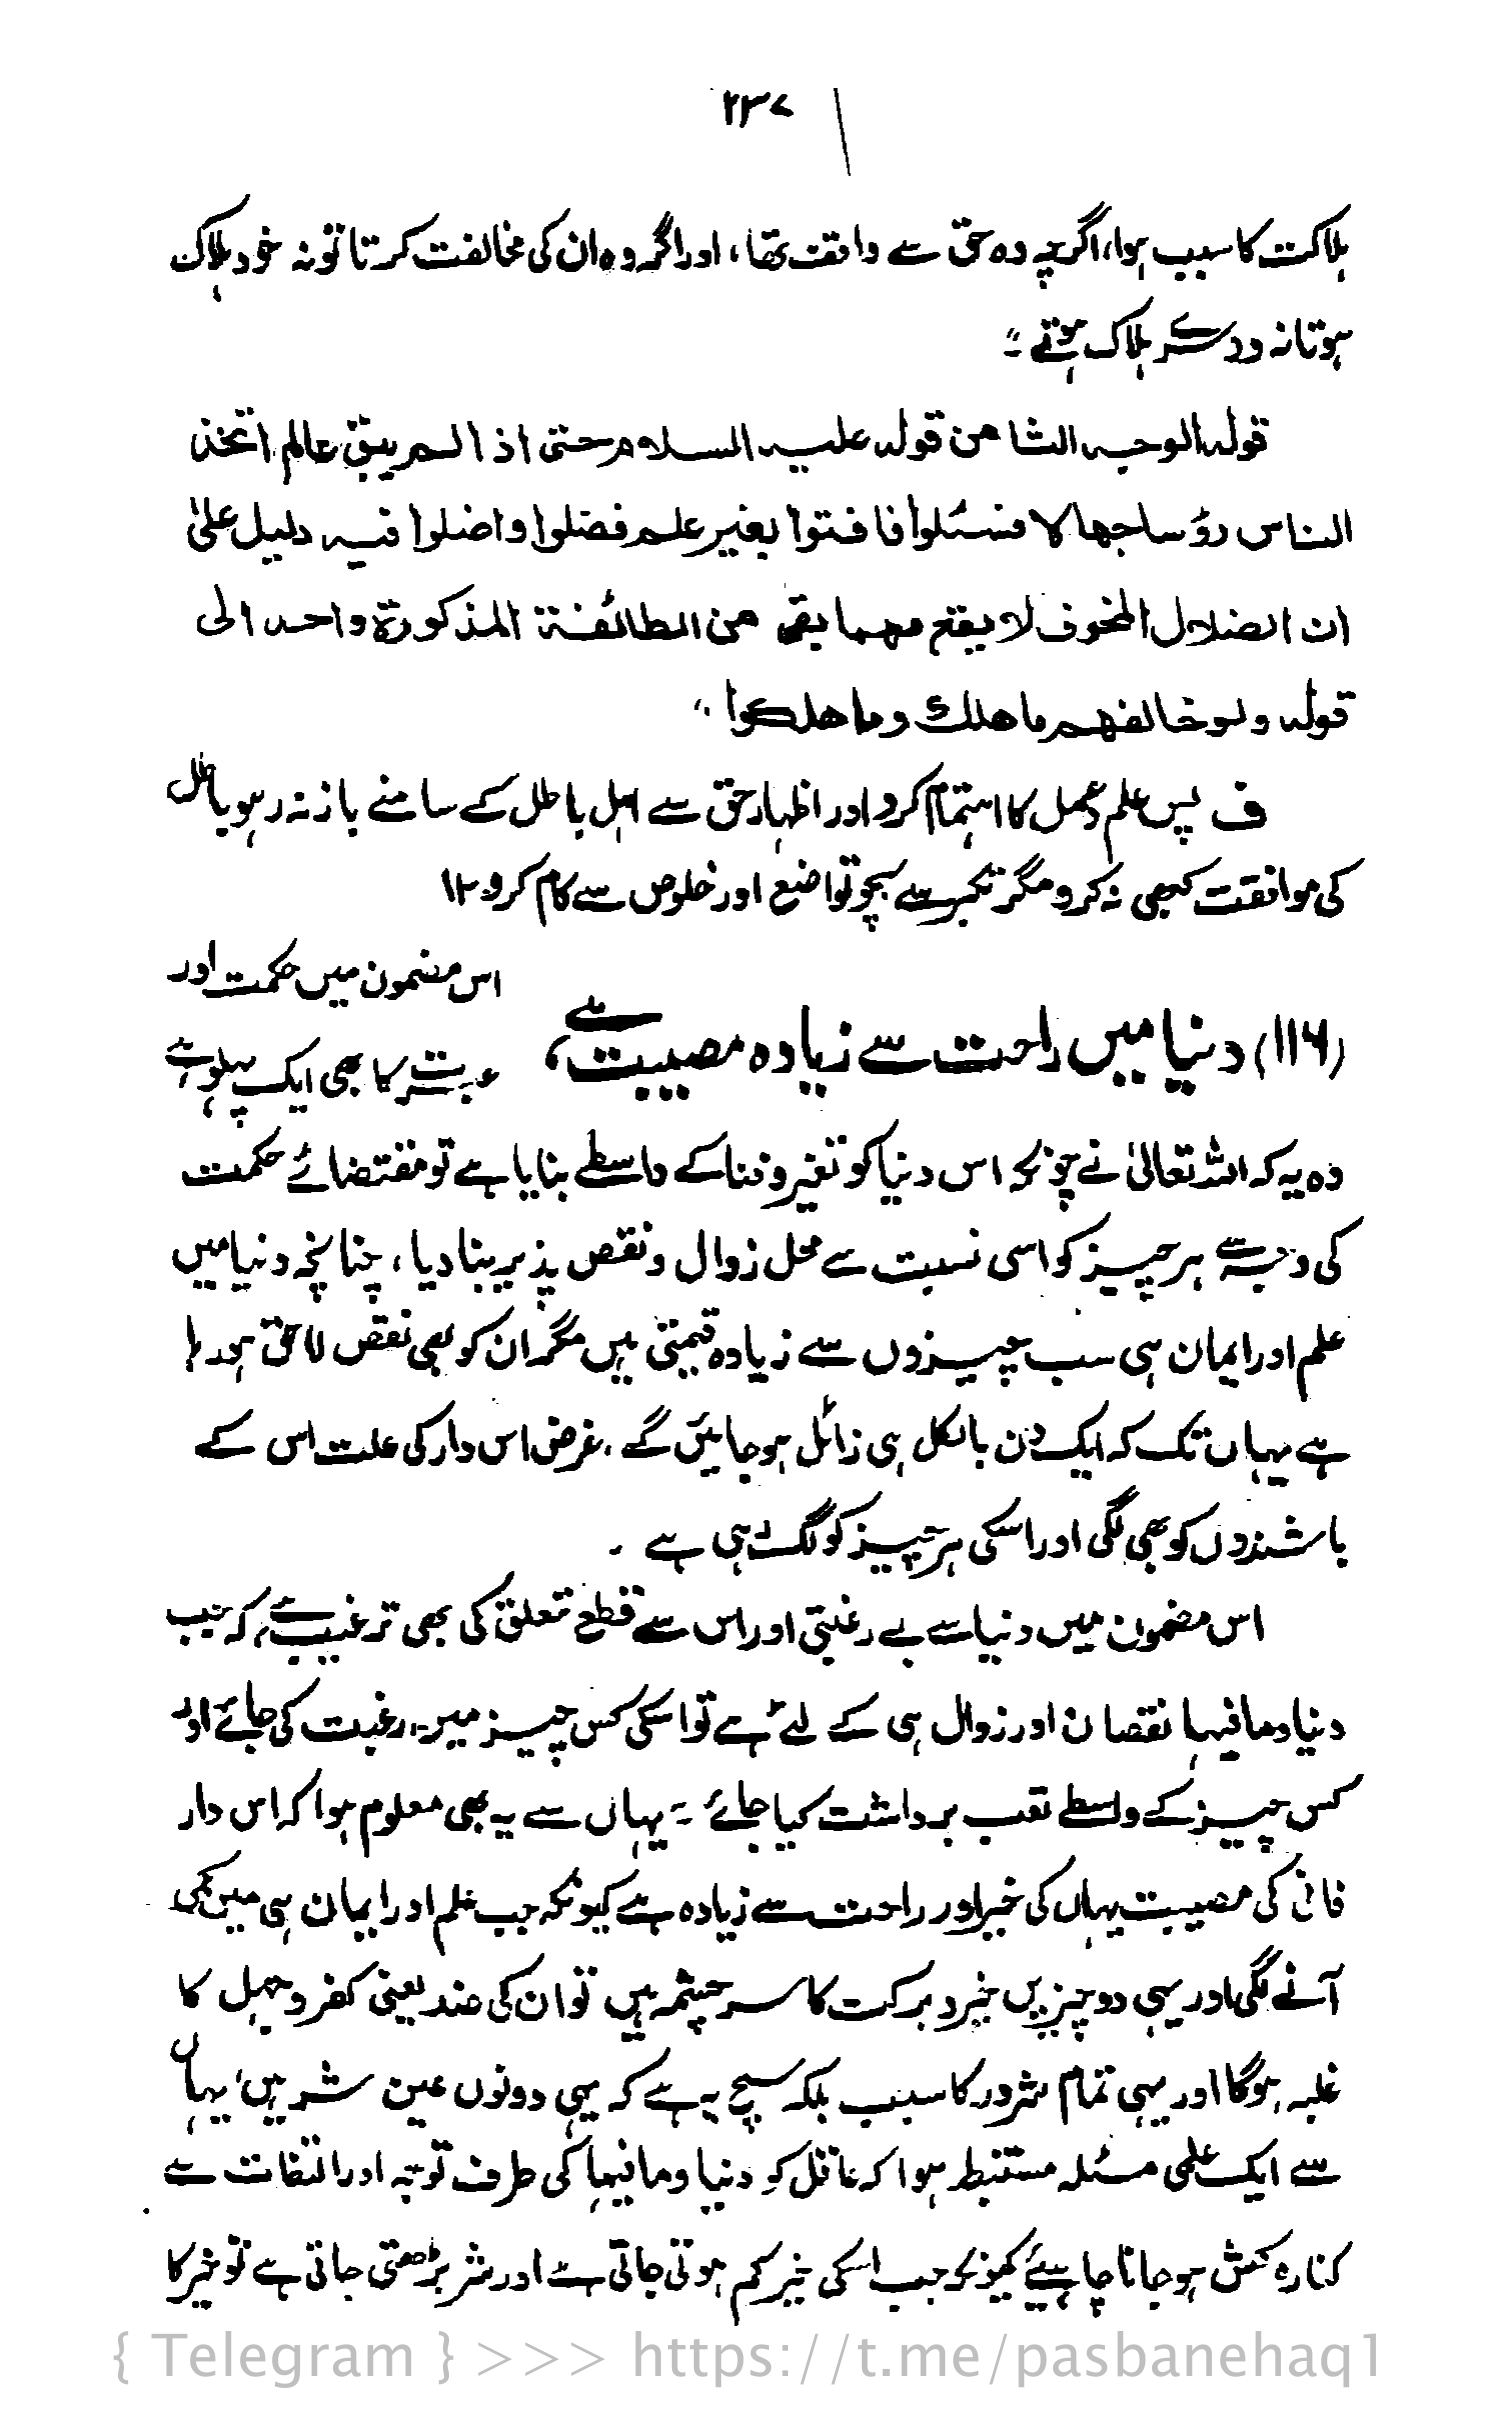 ۲۳۷
ہلاکت کا سبب ہوا، اگرچہ وہ حق سے واقف تھا، اور اگر وہ ان کی مخالفت کرتا تو نہ خود ہلاک
ہوتا نہ دوسرے ہلاک ہوتے ۔"
قولہ الوجہ الثامن قولہ علیہ السلام حتی اذا لم یبق عالم اتخذ
الناس رؤسا جھالا فسئلوا فافتوا بغیر علم فضلوا واضلوا فیہ دلیل علیٰ
ان الضلال المخوف لا یقع مھما بقی من الطائفۃ المذکورۃ واحد الی
قولہ ولو خالفھم ما ھلک وما ھلکوا "
ف پس علم و عمل کا اہتمام کرو اور اظہار حق سے اہل باطل کے سامنے باز نہ رہو باطل
کی موافقت کبھی نہ کرو مگر تکبر سے بچو تواضع اور خلوص سے کام کرو ۱۲
(۱۱۶) دنیا میں راحت سے زیادہ مصیبت ہے،
اس مضمون میں حکمت اور
عبرت کا بھی ایک پہلو ہے
وہ یہ کہ اللہ تعالیٰ نے چونکہ اس دنیا کو تغیر و فنا کے واسطے بنایا ہے تو مقتضائے حکمت
کی وجہ سے ہر چیز کو اسی نسبت سے محل زوال و نقص پذیر بنا دیا، چنانچہ دنیا میں
علم اور ایمان ہی سب چیزوں سے زیادہ قیمتی ہیں مگر ان کو بھی نقص لاحق ہو رہا
ہے یہاں تک کہ ایک دن بالکل ہی زائل ہو جائیں گے، غرض اس دار کی علت اس کے
باشندوں کو بھی لگی اور اسکی ہر چیز کو لگ رہی ہے ۔
اس مضمون میں دنیا سے بے رغبتی اور اس سے قطع تعلق کی بھی ترغیب ہے، کہ جب
دنیا و مافیہا نقصان اور زوال ہی کے لئے ہے تو اسکی کس چیز میں رغبت کی جائے اور
کس چیز کے واسطے تعب برداشت کیا جائے ۔ یہاں سے یہ بھی معلوم ہوا کہ اس دار
فانی کی مصیبت یہاں کی خیر اور راحت سے زیادہ ہے کیونکہ جب علم اور ایمان ہی میں کمی
آنے لگی اور یہی دو چیزیں خیر و برکت کا سرچشمہ ہیں تو ان کی ضد یعنی کفر و جہل کا
غلبہ ہوگا اور یہی تمام شرور کا سبب بلکہ سچ یہ ہے کہ یہی دونوں عین شر ہیں، یہاں
سے ایک علمی مسئلہ مستنبط ہوا کہ عاقل کو دنیا و مافیہا کی طرف توجہ اور التفات سے
کنارہ کش ہو جانا چاہیئے کیونکہ جب اسکی خیر کم ہوتی جاتی ہے اور شر بڑھتی جاتی ہے تو خیر کا
{ Telegram } >>> https://t.me/pasbanehaq1